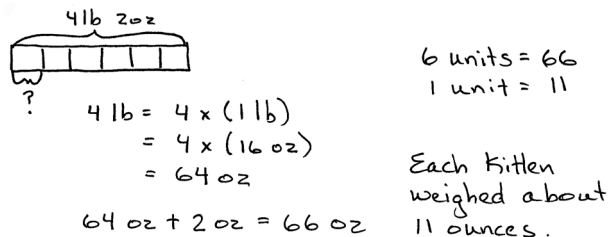 4lb 2oz
?
4 lb = 4 x (1 lb)
= 4 x (16 oz)
= 64 oz
64 oz + 2 oz = 66 oz
6 units = 66
1 unit = 11
Each kitten
weighed about
11 ounces.